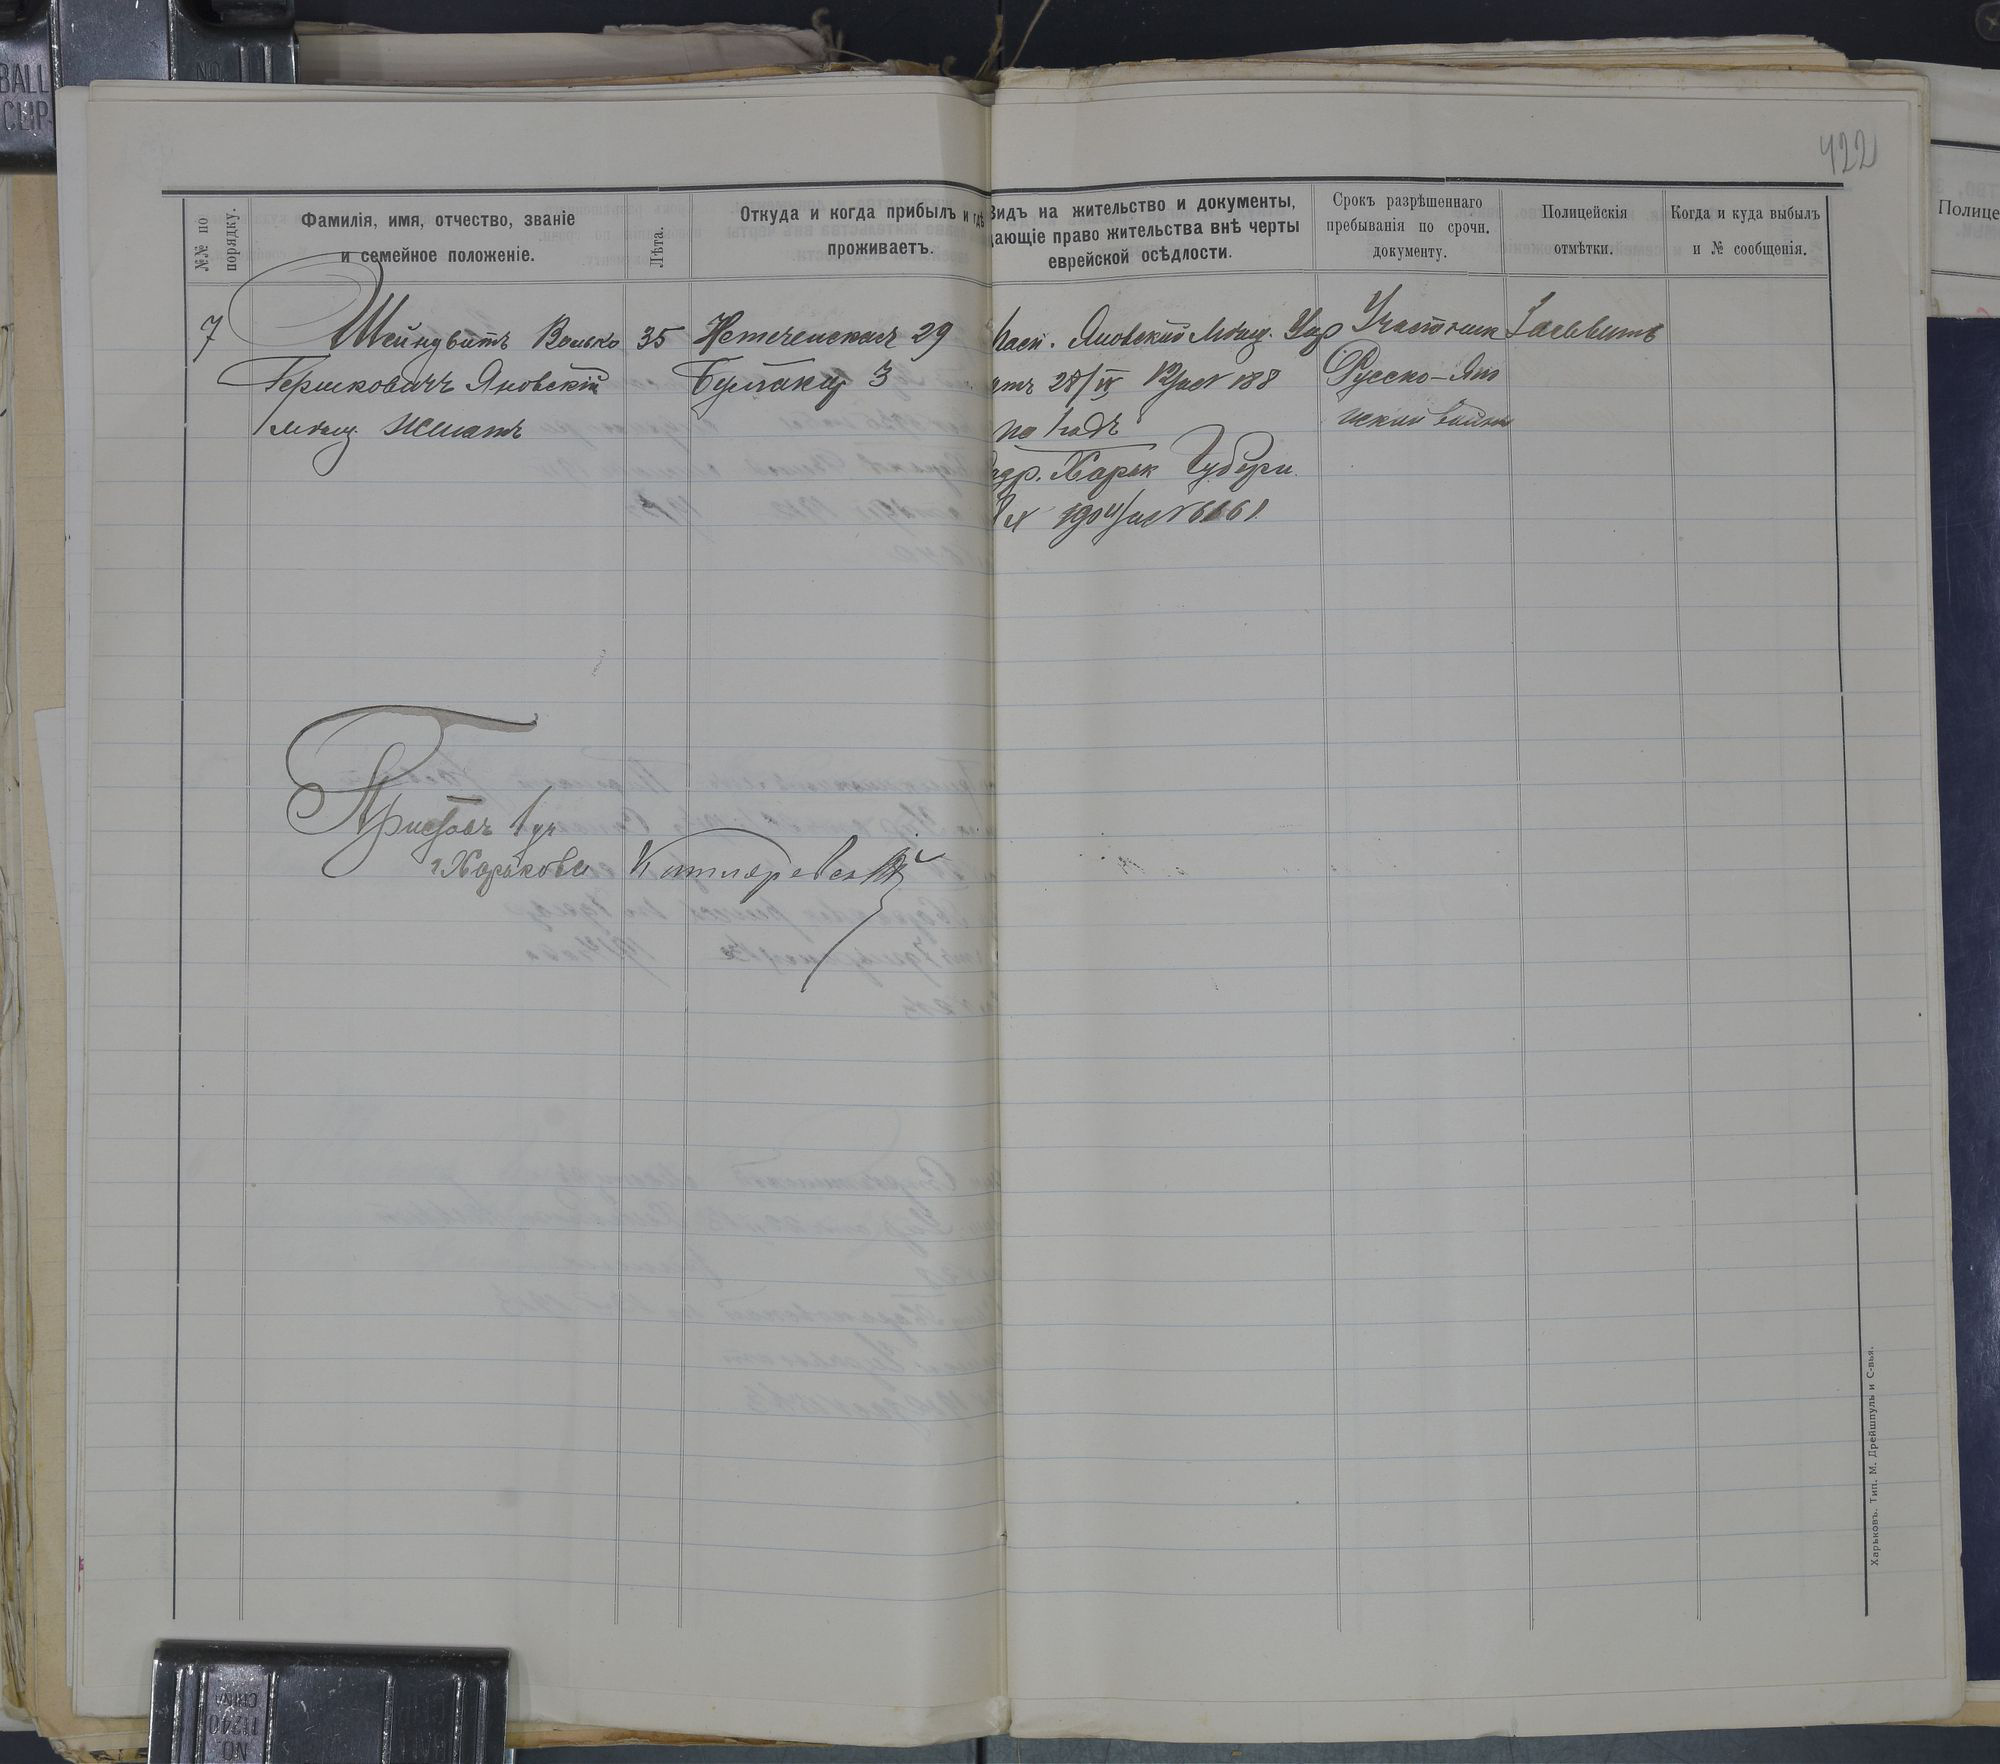 BALL
CLIP
NO.
422
№№ по
порядку.
Фамилія, имя, отчество, званіе
и семейное положеніе.
Лѣта.
Откуда и когда прибылъ и гдѣ
проживаетъ.
Видъ на жительство и документы,
дающіе право жительства внѣ черты
еврейской осѣдлости.
Срокъ разрѣшеннаго
пребыванія по срочн.
документу.
Полицейскія
отмѣтки.
Когда и куда выбылъ
и № сообщенія.
Полице
7
Шейндвитъ Волько
Гершковичъ Яновскій
мѣщ. женатъ
35
Нетеченская 29
3
Яновской Мѣщ. Упр
28/IV № 188
на годъ
Харьк Губерн.
1904 № 6661
Участник
Русско-Япо
нской войны
Приставъ 1 уч
г. Харькова Котляревскій
Харьковъ. Тип. М. Дрейшпуль и С-вья.
NO.
11240
CHINA